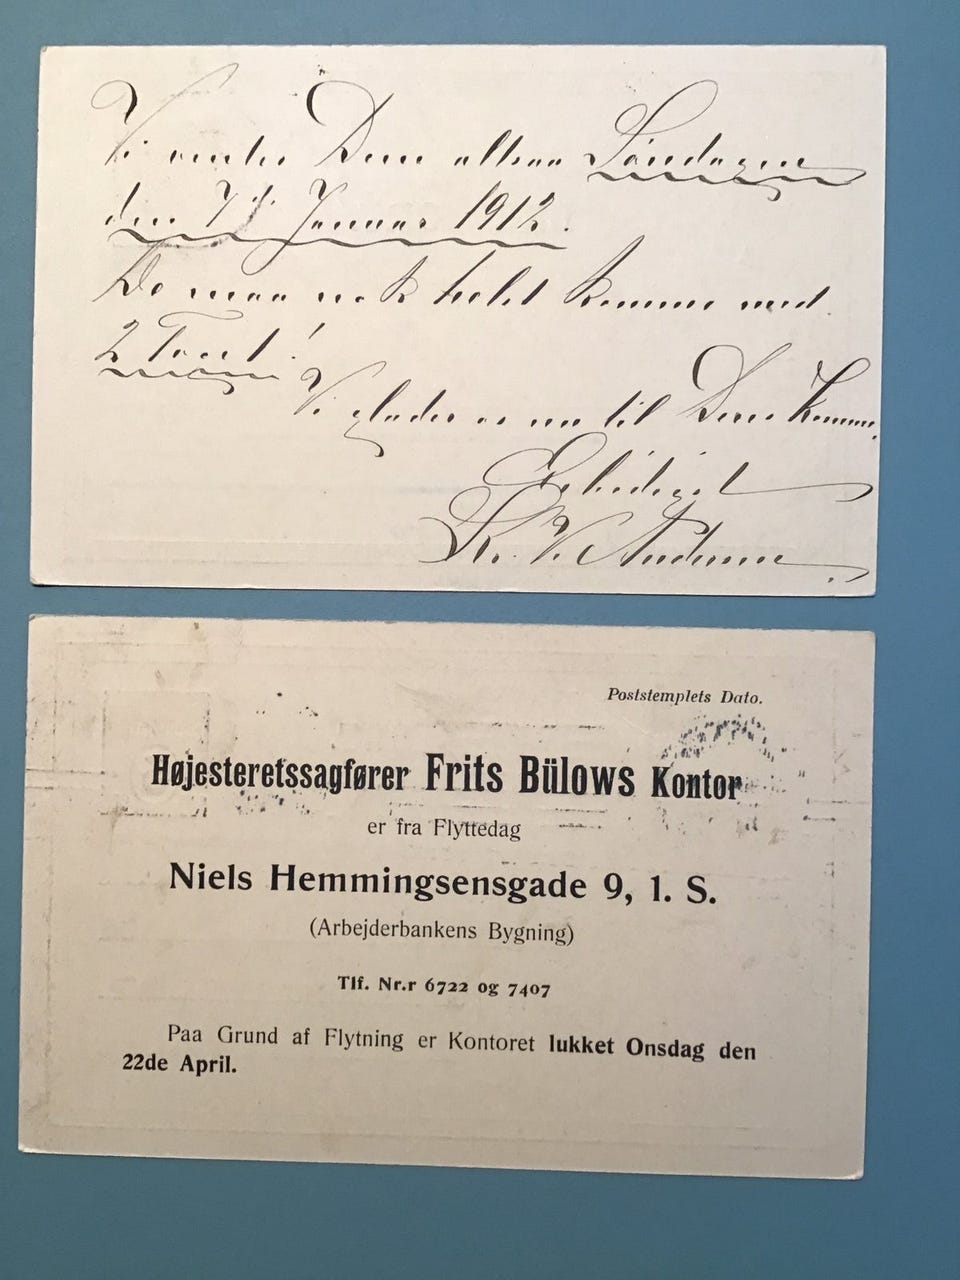 Vi venter Dem altsaa Søndagen
den 7d. Januar 1912.
De maa nok helst komme med
2 Toget!
Vi glæder os nu til Deres Komme.
Ærbødigst
Kr. V. Andersen
Poststemplets Dato.
Højesteretssagfører Frits Bülows Kontor
er fra Flyttedag
Niels Hemmingsensgade 9, 1. S.
(Arbejderbankens Bygning)
Tlf. Nr.r 6722 og 7407
Paa Grund af Flytning er Kontoret lukket Onsdag den
22de April.